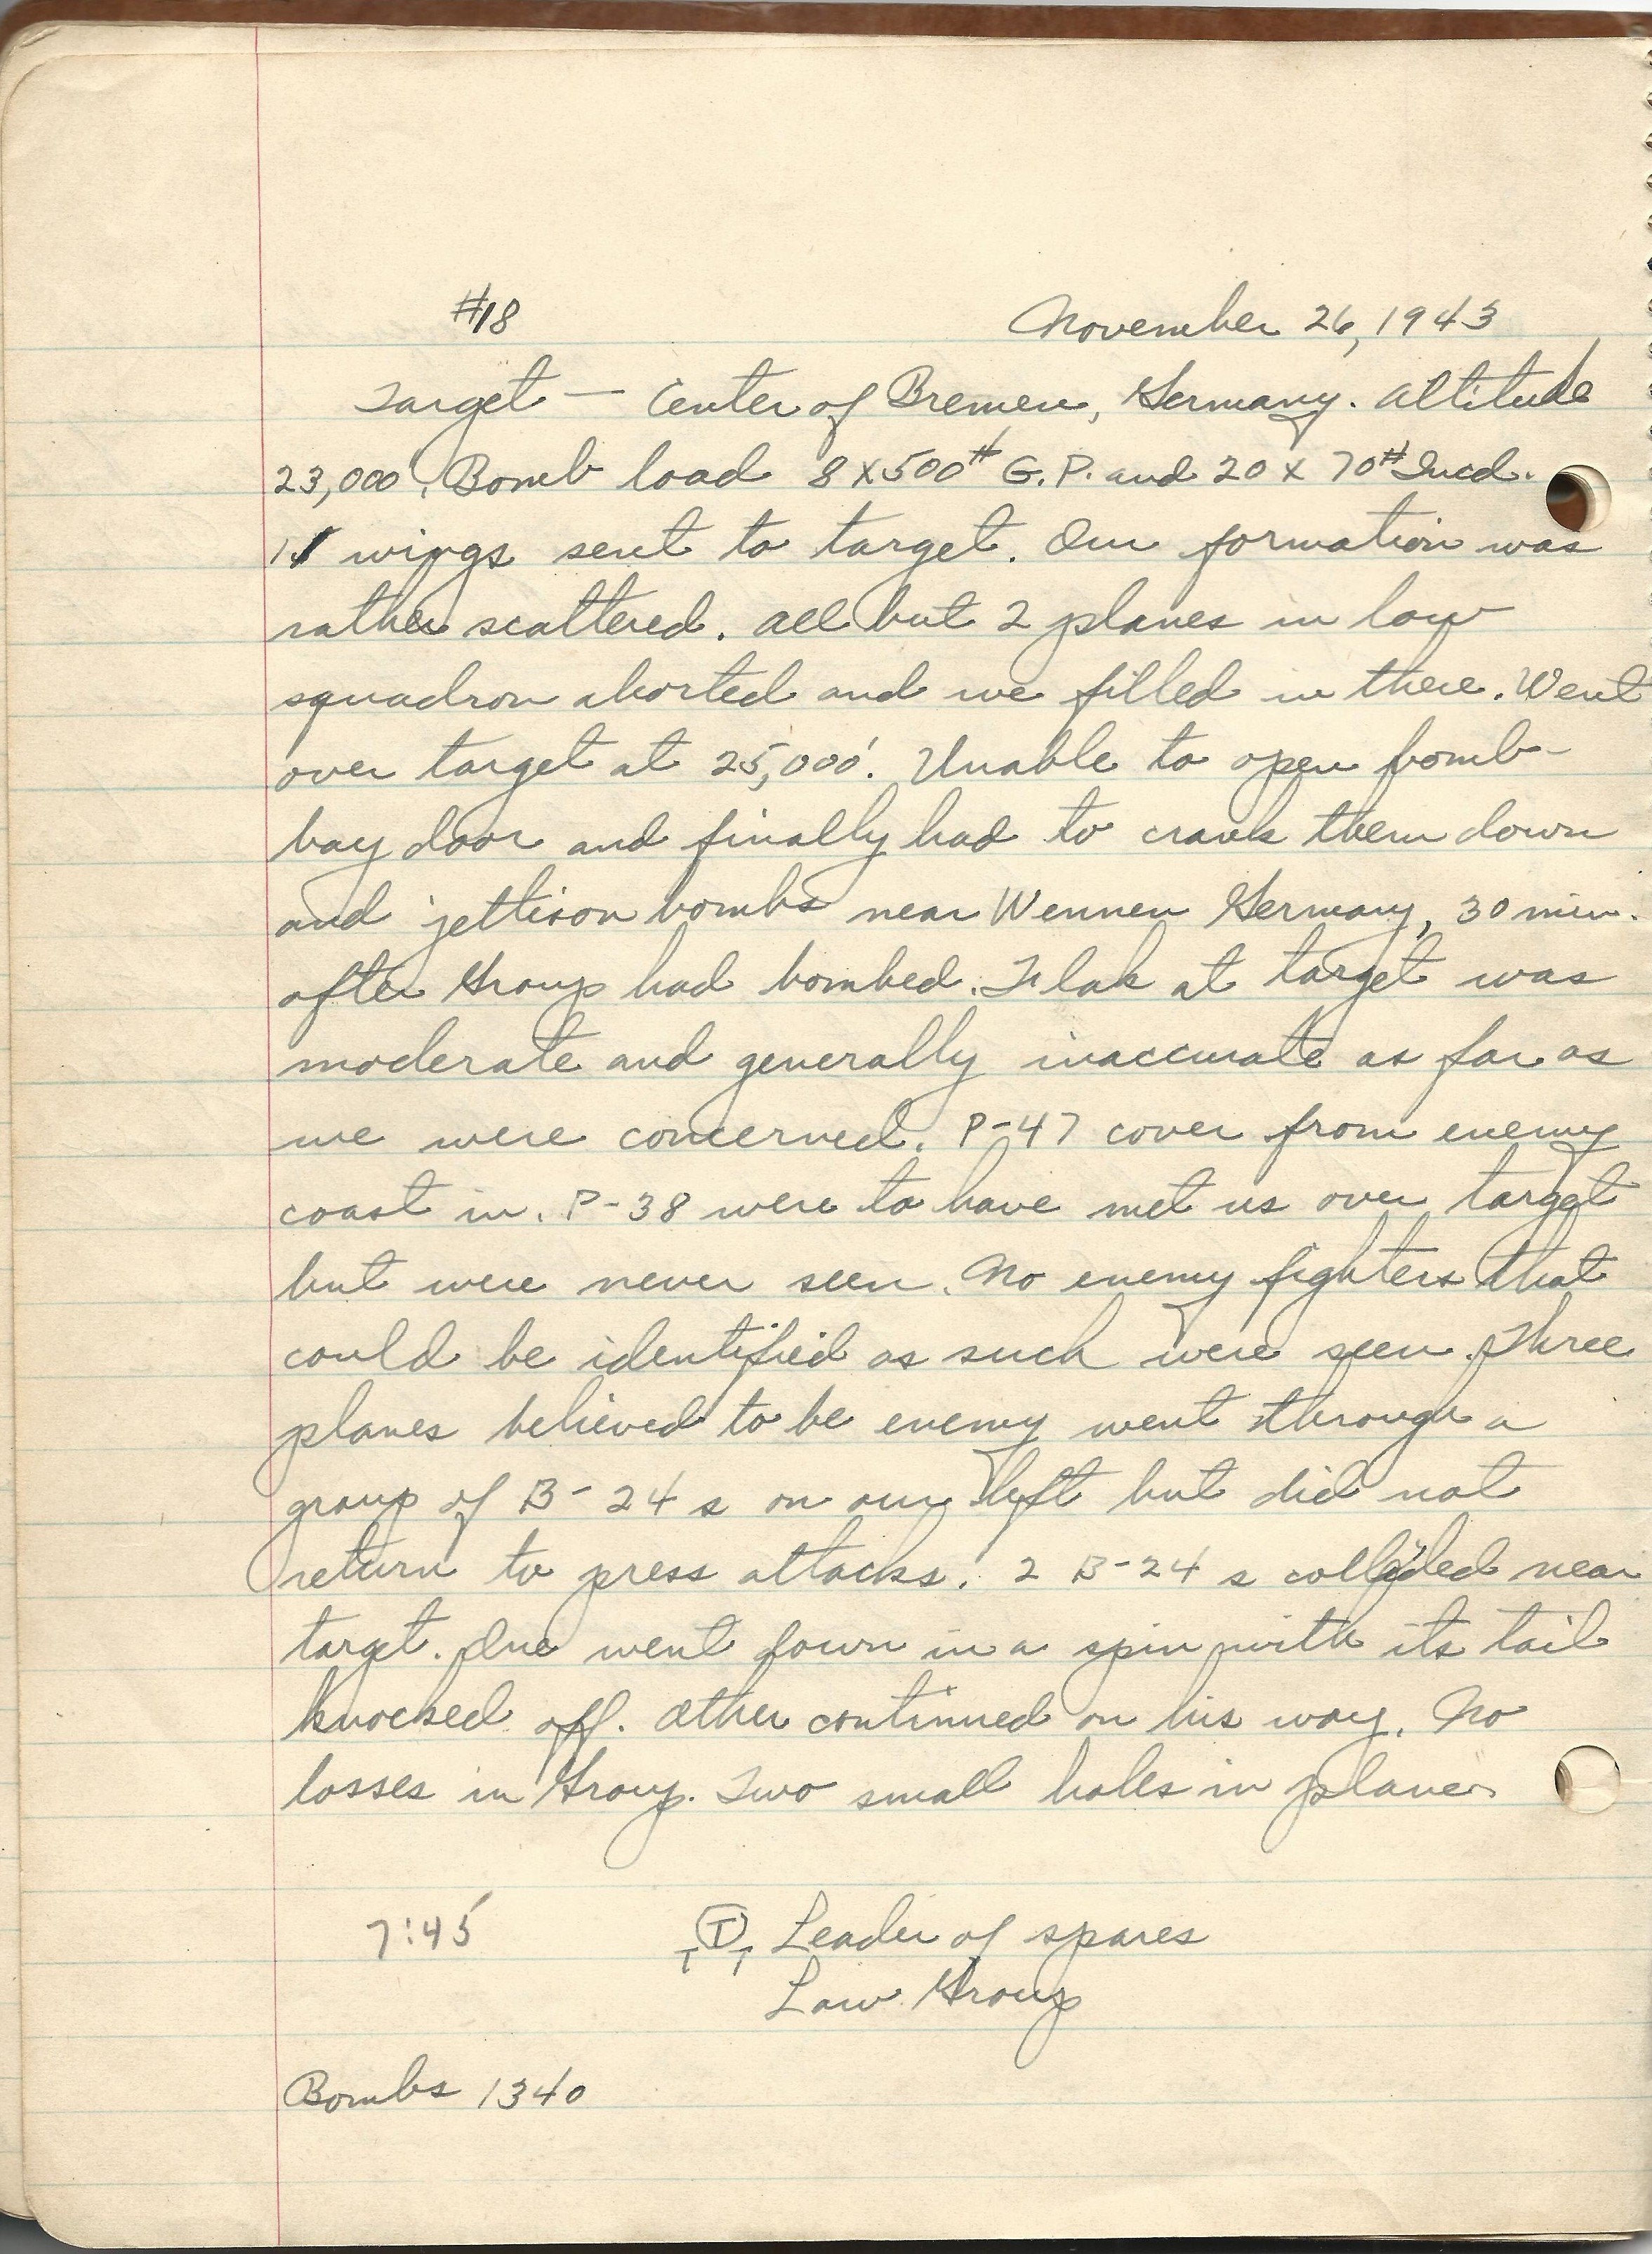 #18 November 26, 1943
Target — Center of Bremen, Germany. Altitude
23,000'. Bomb load 8 X 500# G.P. and 20 x 70# Incd.
11 wings sent to target. Our formation was
rather scattered. All but 2 planes in low
squadron aborted and we filled in there. Went
over target at 25,000'. Unable to open bomb-
bay door and finally had to crank them down
and jettison bombs near Wennen Germany, 30 min.
after Group had bombed. Flak at target was
moderate and generally inaccurate as far as
we were concerned. P-47 cover from enemy
coast in. P-38 were to have met us over target
but were never seen. No enemy fighters that
could be identified as such were seen. Three
planes believed to be enemy went through a
group of B-24s on our left but did not
return to press attacks. 2 B-24s collided near
target. One went down in a spin with its tail
knocked off. Other continued on his way. No
losses in Group. Two small holes in plane.
7:45 T T T Leader of spares
Low Group
Bombs 1340